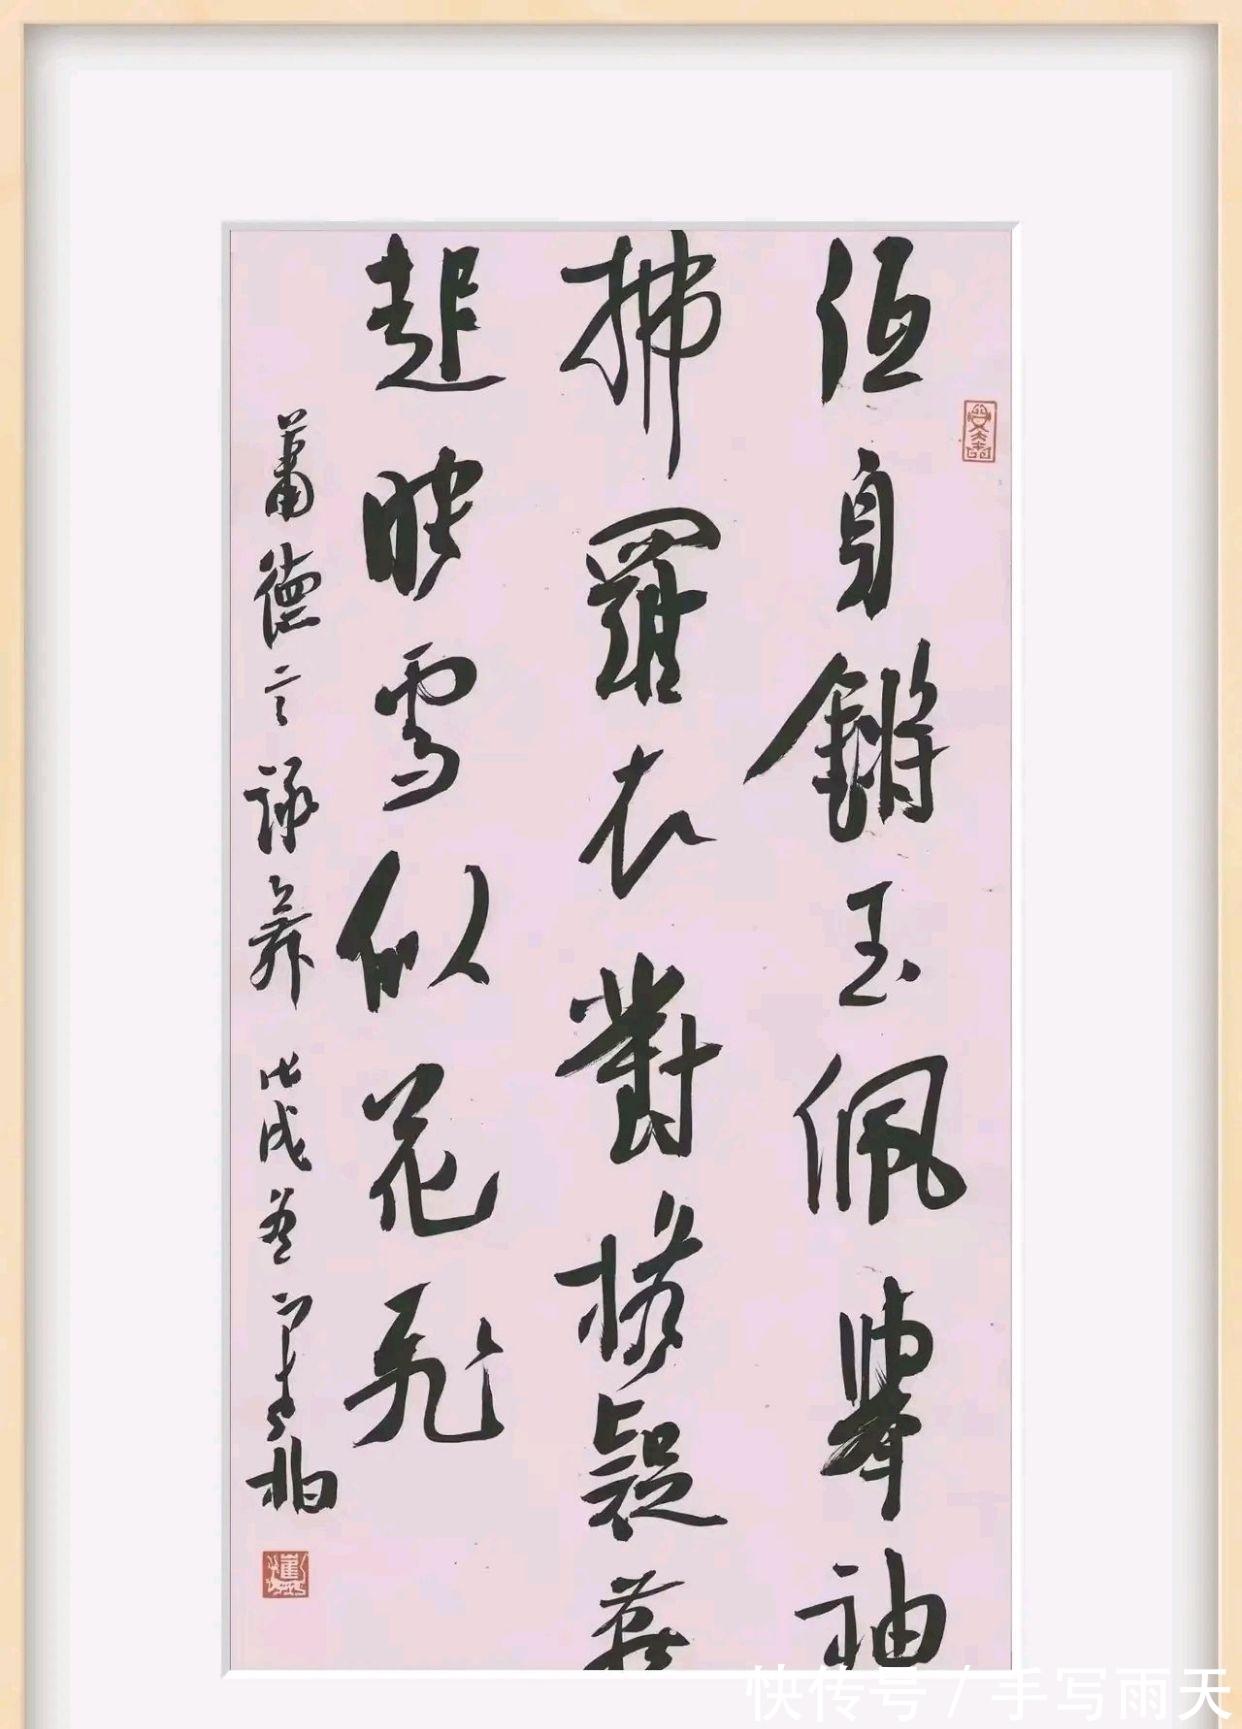 低身鏘玉佩舉袖
拂羅衣對檐疑燕
起映雪似花飛
蕭德言詠舞 戊戌 柏
快传号 / 手写雨天